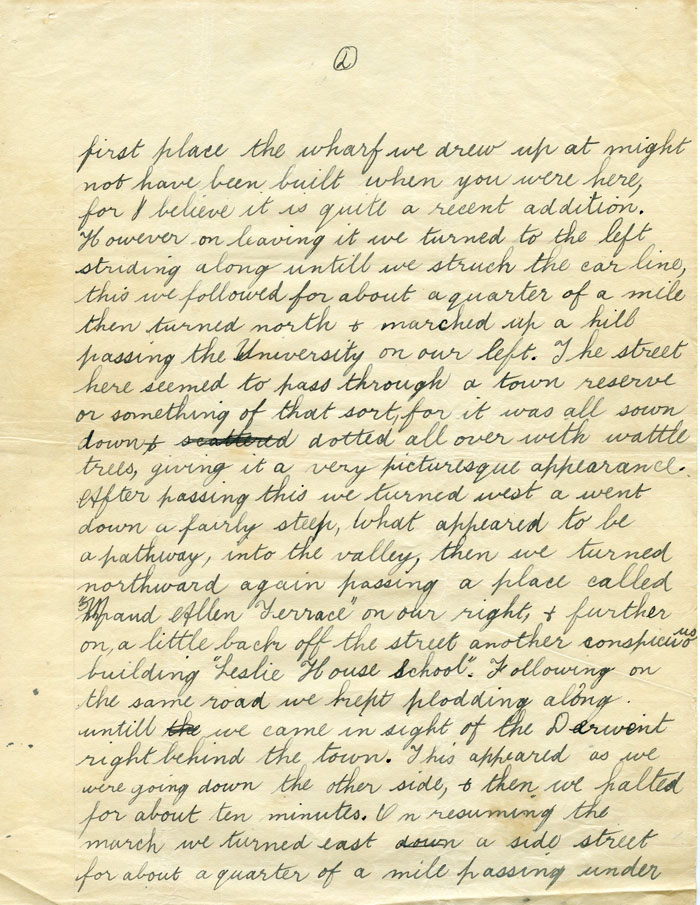 2
first place the wharf we drew up at might
not have been built when you were here,
for I believe it is quite a recent addition.
However on leaving it we turned to the left
striding along untill we struck the car line,
this we followed for about a quarter of a mile
then turned north & marched up a hill
passing the University on our left. The street
here seemed to pass through a town reserve
or something of that sort, for it was all sown
down & scattered dotted all over with wattle
trees, giving it a very picturesque appearance.
After passing this we turned west a went
down a fairly steep, what appeared to be
a pathway, into the valley, then we turned
northward again passing a place called
"Maud Allen Terrace" on our right, & further
on, a little back off the street another conspicuous
building "Leslie House School". Following on
the same road we kept plodding along
untill the we came in sight of the Derwent
right behind the town. This appeared as we
were going down the other side, & then we halted
for about ten minutes. On resuming the
march we turned east down a side street
for about a quarter of a mile passing under